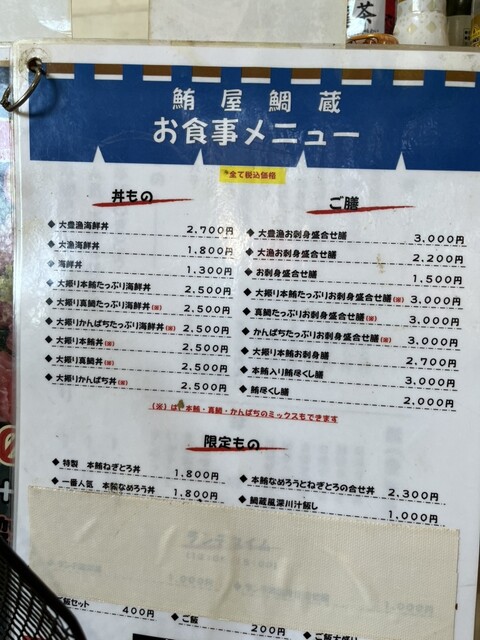 茶
鮪屋鯛蔵
お食事メニュー
*全て税込価格
丼もの
◆大豊漁海鮮丼 2,700円
◆大漁海鮮丼 1,800円
◆海鮮丼 1,300円
◆大盛り本鮪たっぷり海鮮丼 2,500円
◆大盛り真鯛たっぷり海鮮丼(※) 2,500円
◆大盛りかんぱちたっぷり海鮮丼(※) 2,500円
◆大盛り本鮪丼(※) 2,500円
◆大盛り真鯛丼(※) 2,500円
◆大盛りかんぱち丼(※) 2,500円
ご膳
◆大豊漁お刺身盛合せ膳 3,000円
◆大漁お刺身盛合せ膳 2,200円
◆お刺身盛合せ膳 1,500円
◆大盛り本鮪たっぷりお刺身盛合せ膳(※) 3,000円
◆真鯛たっぷりお刺身盛合せ膳(※) 3,000円
◆かんぱちたっぷりお刺身盛合せ膳(※) 3,000円
◆大盛り本鮪お刺身膳 2,700円
◆本鮪入り鮪尽くし膳 3,000円
◆鮪尽くし膳 2,000円
(※)は、本鮪・真鯛・かんぱちのミックスもできます
限定もの
◆特製 本鮪ねぎとろ丼 1,800円
◆一番人気 本鮪なめろう丼 1,800円
◆本鮪なめろうとねぎとろの合せ丼 2,300円
◆鯛蔵風深川汁飯し 1,000円
ご飯セット 400円
◆ご飯 200円
◆ご飯大盛り